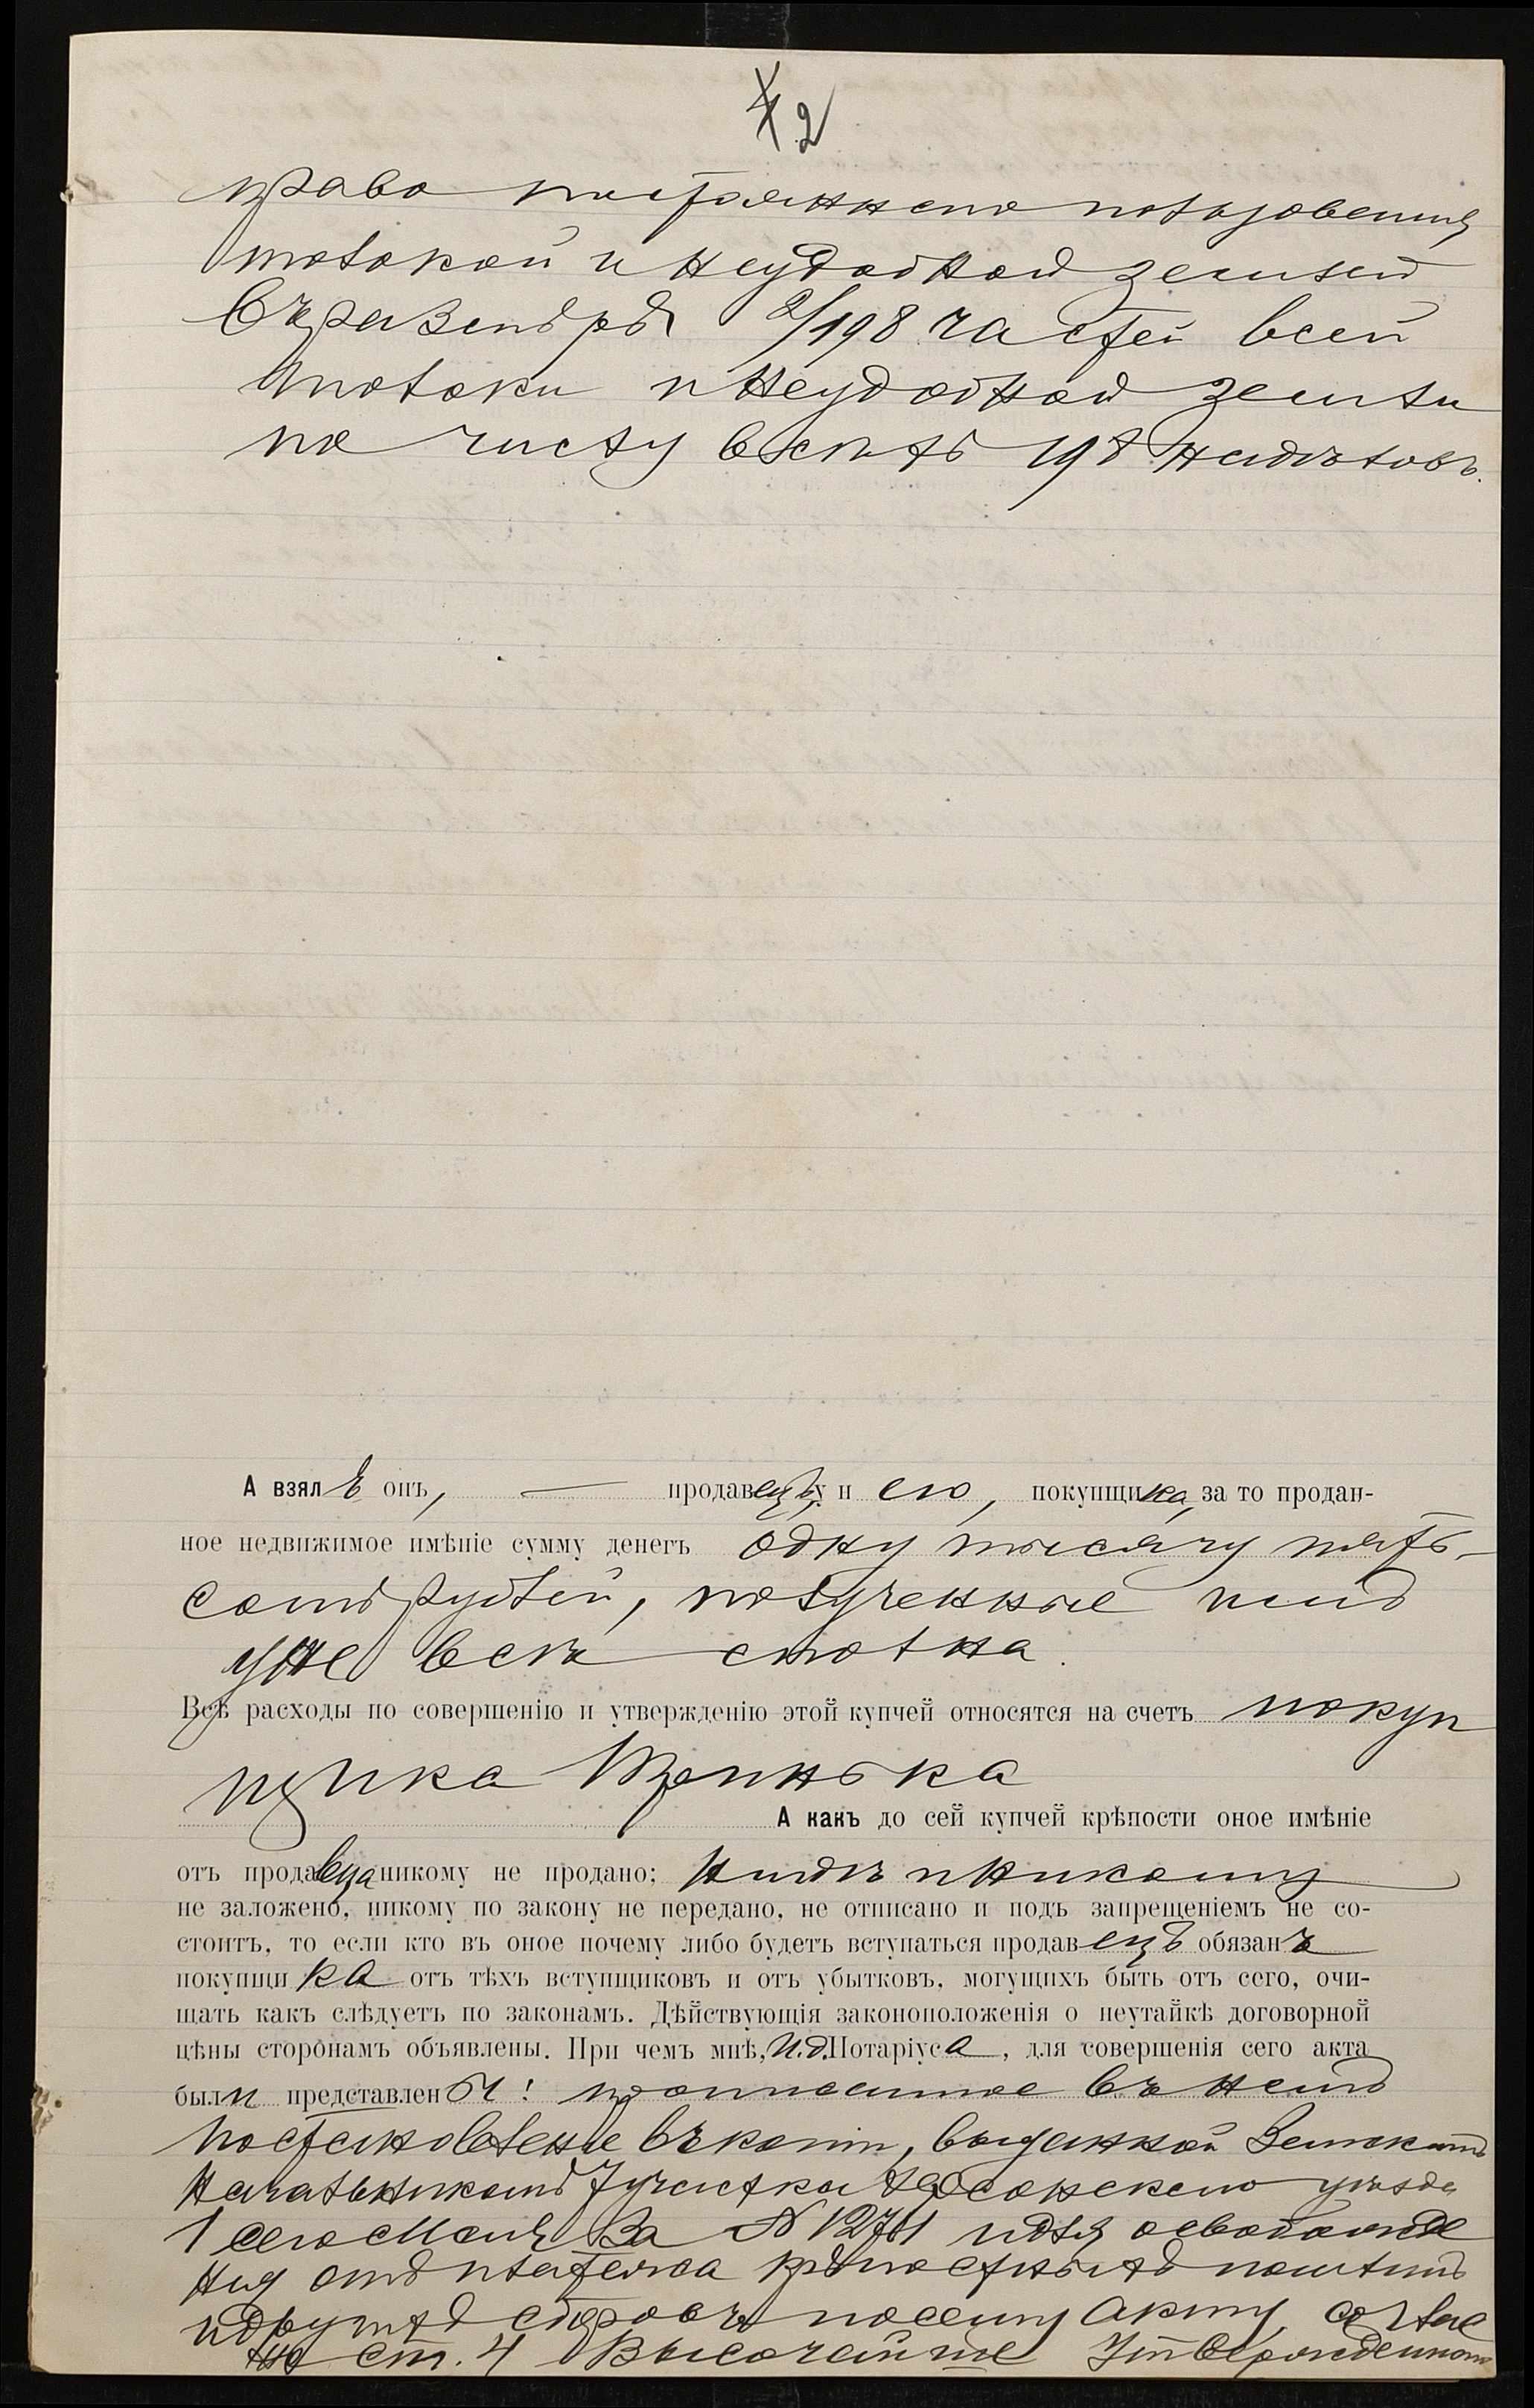 2
право постояннаго пользованія
толокой и неудобной землей
въ размѣрѣ 2/198 частей всей
толоки и неудобной земли
по числу всѣхъ 198 надѣловъ.
А взялъ онъ, — продавецъ, у него, покупщика, за то продан-
ное недвижимое имѣніе сумму денегъ одну тысячу пять-
сотъ рублей, полученные имъ
уже всѣ сполна.
Всѣ расходы по совершенію и утвержденію этой купчей относятся на счетъ покуп
щика
А какъ до сей купчей крѣпости оное имѣніе
отъ продавца никому не продано; нигдѣ и никому
не заложено, никому по закону не передано, не отписано и подъ запрещеніемъ не со-
стоитъ, то если кто въ оное почему либо будетъ вступаться продавецъ обязанъ
покупщика отъ тѣхъ вступщиковъ и отъ убытковъ, могущихъ быть отъ сего, очи-
щать какъ слѣдуетъ по законамъ. Дѣйствующія законоположенія о неутайкѣ договорной
цѣны сторонамъ объявлены. При чемъ мнѣ, И.д. Нотаріуса, для совершенія сего акта
были представлены: прописанное въ немъ
постановленіе въ копіи, выданной Земскимъ
Начальникомъ 7 участка Херсонскаго уѣзда
1 сего Мая за № 1271 и для освобожде
нія отъ платежа крѣпостныхъ пошлинъ
и другихъ сборовъ по сему акту, соглас
но ст. 4 Высочайше Утвержденнаго